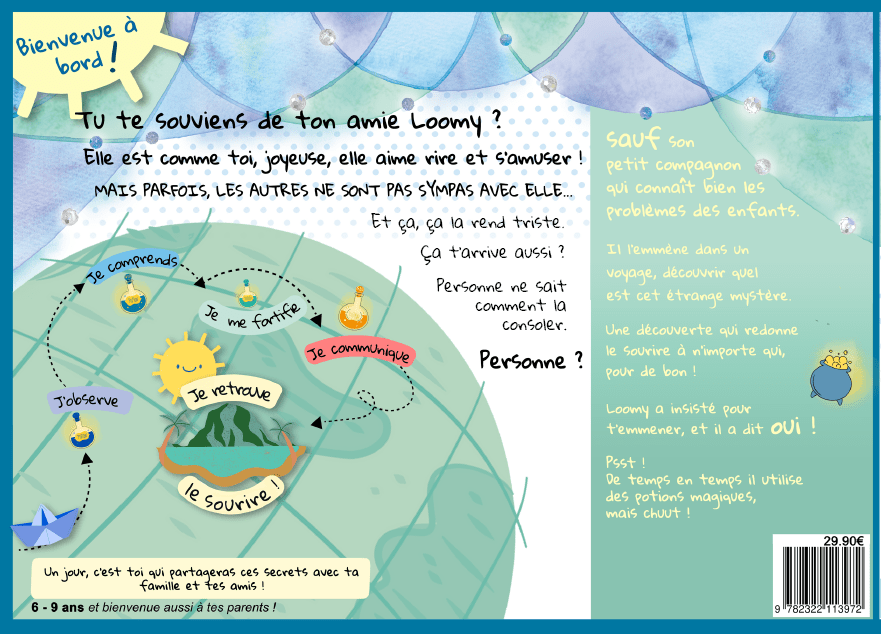 Bienvenue à
bord !
Tu te souviens de ton amie Loomy ?
Elle est comme toi, joyeuse, elle aime rire et s'amuser !
MAIS PARFOIS, LES AUTRES NE SONT PAS SYMPAS AVEC ELLE...
Et ça, ça la rend triste.
Ça t'arrive aussi ?
Personne ne sait
comment la
consoler.
Personne ?
J'observe
Je comprends
Je me fortife
Je communique
Je retrouve
le sourire !
Un jour, c'est toi qui partageras ces secrets avec ta
famille et tes amis !
6 - 9 ans et bienvenue aussi à tes parents !
sauf son
petit compagnon
qui connaît bien les
problèmes des enfants.
Il l'emméne dans un
voyage, découvrir quel
est cet étrange mystère.
Une découverte qui redonne
le sourire à n'importe qui,
pour de bon !
Loomy a insisté pour
t'emmener, et il a dit oui !
Psst !
De temps en temps il utilise
des potions magiques,
mais chuut !
29.90€
9 782322 113972